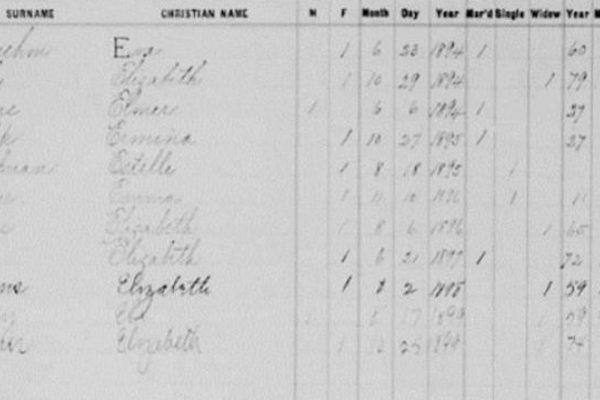 SURNAME CHRISTIAN NAME M F Month Day Year Mar'd Single Widow Year
Eva 1 6 23 1894 1 60
Elizabeth 1 10 29 1894 1 79
Elmer 1 6 6 1894 1 37
Ermina 1 10 27 1895 1 27
Estelle 1 8 18 1895 1
Emma 1 11 10 1896 1 11
Elizabeth 1 8 6 1896 1 65
Elizabeth 1 6 21 1897 1 72
Elizabeth 1 8 2 1898 1 59
17 59
Elizabeth 1 12 25 74